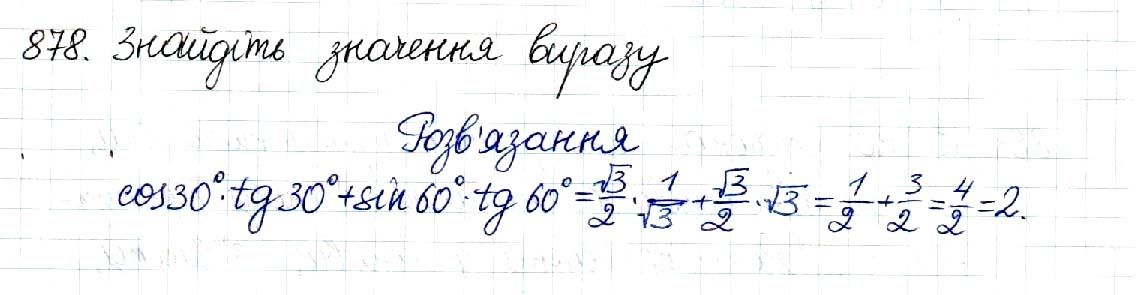 878. Знайдіть значення виразу
Розв'язання
cos30°·tg30°+sin60°·tg60°=√3/2·1/√3+√3/2·√3=1/2+3/2=4/2=2.